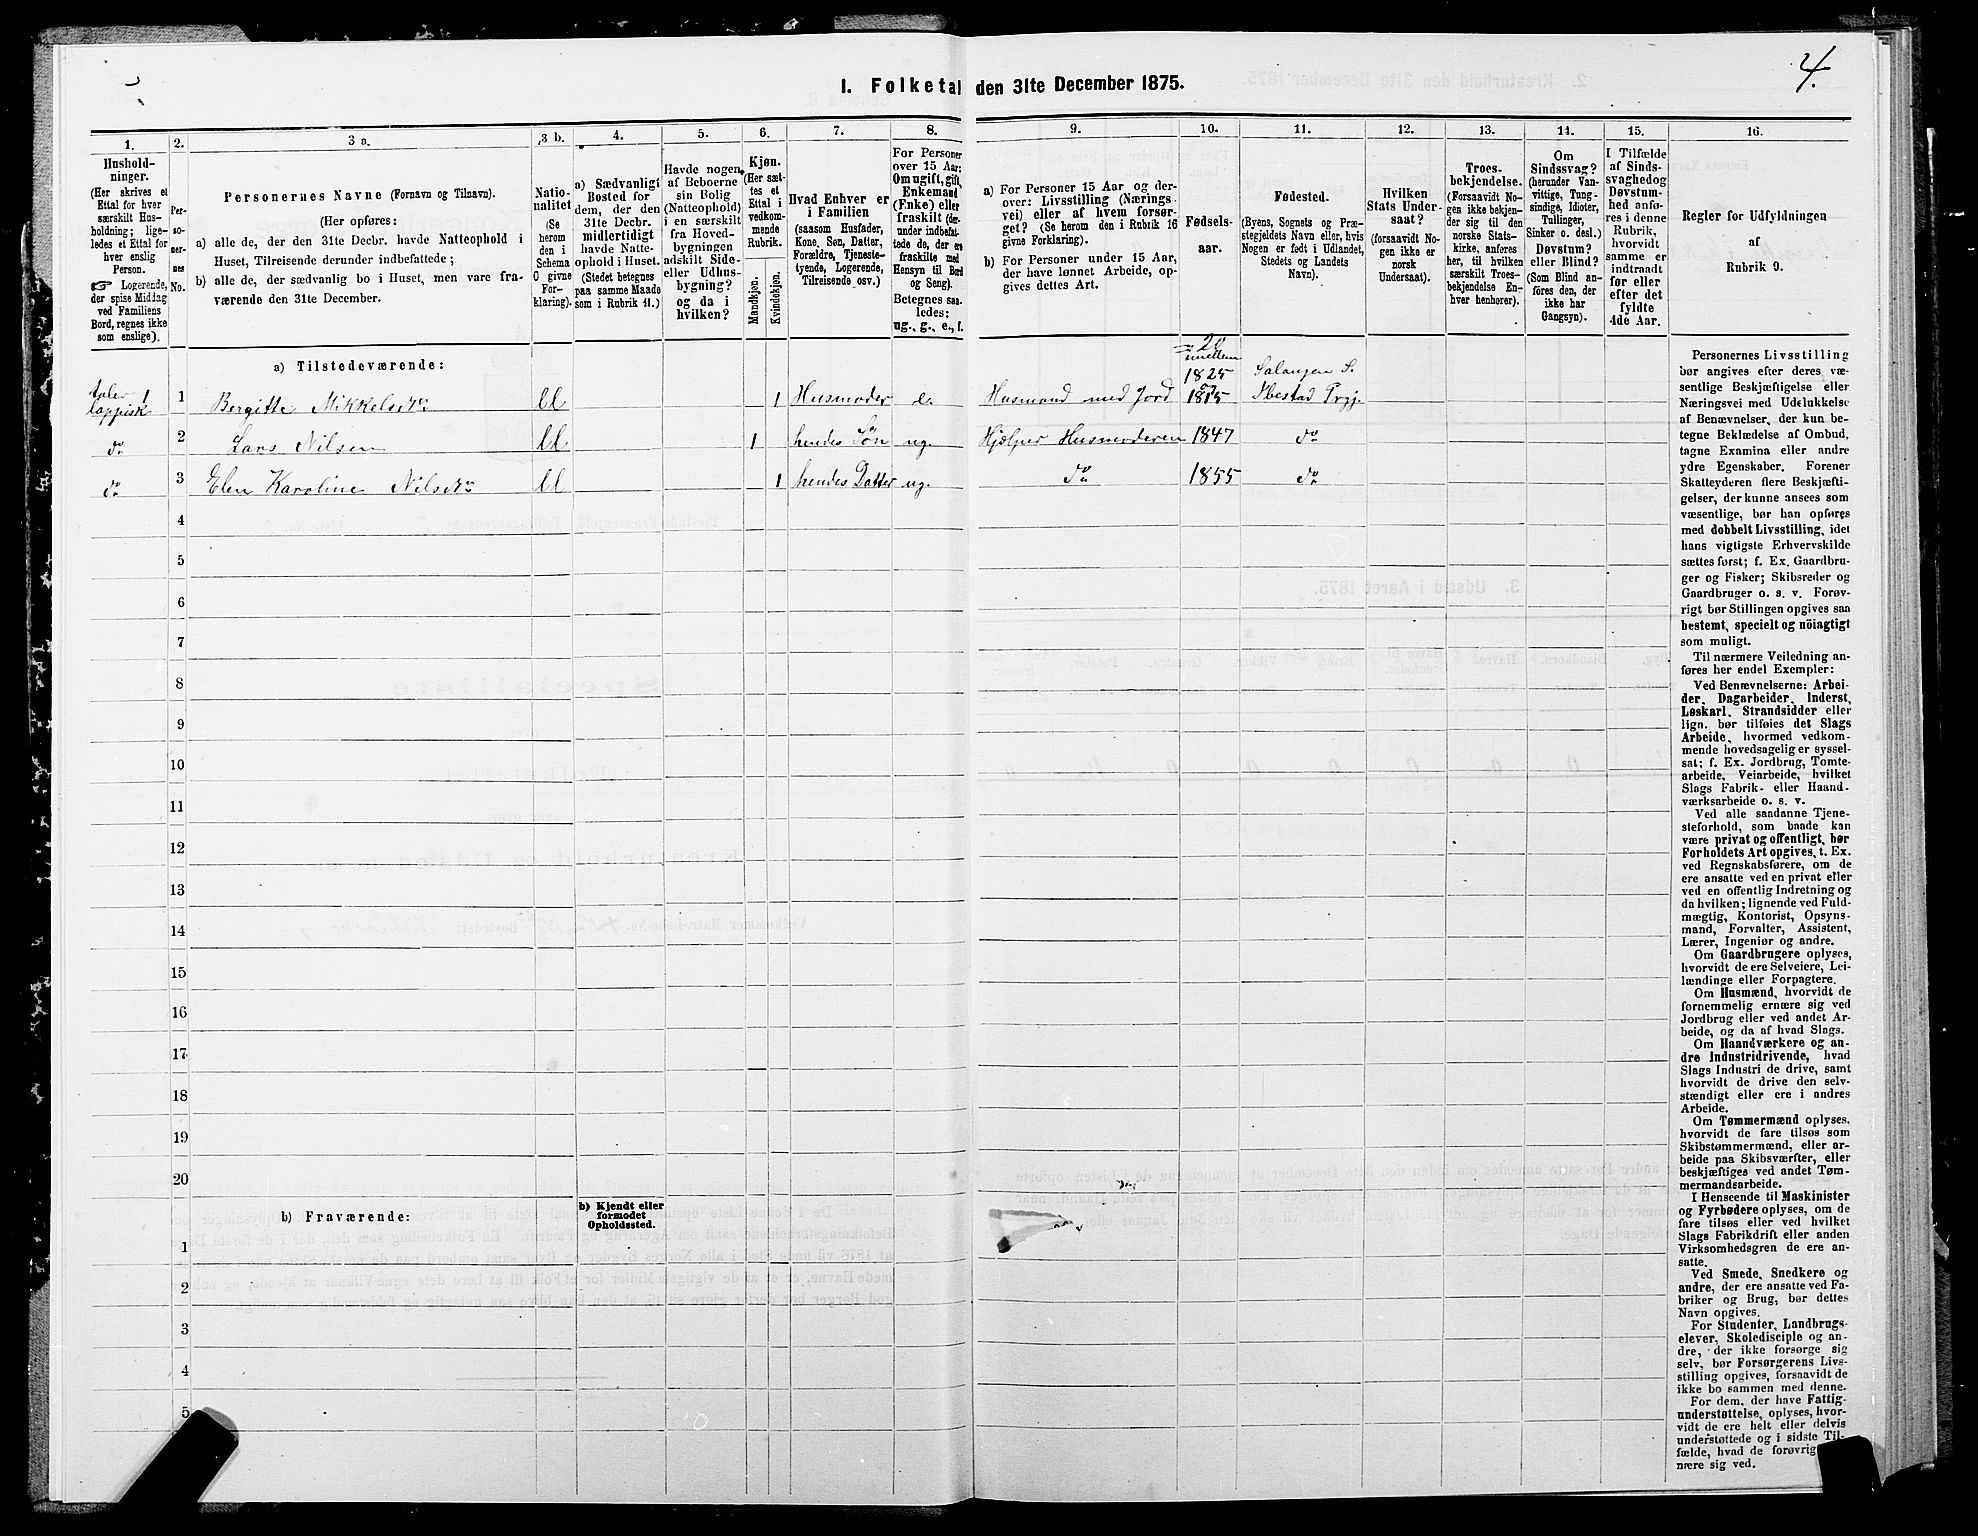 4.
1. Folketal den 31te December 1875.
1.
Hushold-
ninger.
(Her skrives et
Ettal for hver
særskilt Hus-
holdning; lige-
ledes et Ettal for
hver enslig
Person.
☞ Logerende,
der spise Middag
ved Familiens
Bord, regnes ikke
som enslige).
2.
Per-
so-
ner-
nes
No.
3 a.
Personernes Navne (Fornavn og Tilnavn).
(Her opføres:
a) alle de, der den 31te Decbr. havde Natteophold i
Huset, Tilreisende derunder indbefattede;
b) alle de, der sædvanlig bo i Huset, men vare fra-
værende den 31te December.
3 b.
Natio-
nalitet
(Se
herom
den i
Schema
C givne
For-
klaring).
4.
a) Sædvanligt
Bosted for
dem, der den
31te Decbr.
midlertidigt
havde Natte-
ophold i Huset.
(Stedet betegnes
paa samme Maade
som i Rubrik 11.)
5.
Havde nogen
af Beboerne
sin Bolig
(Natteophold)
i en særskilt
fra Hoved-
bygningen
adskilt Side-
eller Udhus-
bygning?
og da i
hvilken?
6.
Kjøn.
(Her sæt-
tes et
Ettal i
vedkom-
mende
Rubrik.
Mandkjøn.
Kvindekjøn.
7.
Hvad Enhver er
i Familien
(saasom Husfader,
Kone, Søn, Datter,
Forældre, Tjeneste-
tyende, Logerende,
Tilreisende osv.)
8.
For Personer
over 15 Aar:
Om ugift, gift,
Enkemand
(Enke) eller
fraskilt (der-
under indbefat-
tede de, der ere
fraskilte med
Hensyn til Bord
og Seng).
Betegnes saa-
ledes:
ug., g., e., f.
9.
a) For Personer 15 Aar og der-
over: Livsstilling (Nærings-
vei) eller af hvem forsør-
get? (Se herom den i Rubrik 16
givne Forklaring).
b) For Personer under 15 Aar,
der have lønnet Arbeide, op-
gives dettes Art.
10.
Fødsels-
aar.
11.
Fødested.
(Byens, Sognets og Præ-
stegjeldets Navn eller, hvis
Nogen er født i Udlandet,
Stedets og Landets
Navn).
12.
Hvilken
Stats Under-
saat?
(forsaavidt No-
gen ikke er
norsk
Undersaat).
13.
Troes-
bekjendelse.
(Forsaavidt No-
gen ikke bekjen-
der sig til den
norske Stats-
kirke, anføres
her, til hvilken
særskilt Troes-
bekjendelse En-
hver henhører).
14.
Om
Sindssvag?
(herunder Van-
vittige, Tung-
sindige, Idioter,
Tullinger,
Sinker o. desl.)
Døvstum?
eller Blind?
(Som Blind an-
føres den, der
ikke har
Gangsyn).
15.
I Tilfælde
af Sinds-
svaghed og
Døvstum-
hed anfø-
res i denne
Rubrik,
hvorvidt
samme er
indtraadt
før eller
efter det
fyldte
4de Aar.
16.
Regler for Udfyldningen
af
Rubrik 9.
a) Tilstedeværende:
taler
lappisk 1
1 Bergitte Mikkelsdtr ll 1 Husmoder e. Husmand med Jord
20
mellem
1825
1815
Salangen S.
Ibestad Prgj.
do 2 Lars Nilsen ll 1 hendes Søn ug. Hjælper Husmoderen 1847 do
do 3 Elen Karoline Nilsdtr ll 1 hendes Datter ug. do 1855 do
4
5
6
7
8
9
10
11
12
13
14
15
16
17
18
19
20
b) Fraværende:
b) Kjendt eller
formodet
Opholdssted.
1
2
3
4
5
Personernes Livsstilling
bør angives efter deres væ-
sentlige Beskjæftigelse eller
Næringsvei med Udelukkelse
af Benævnelser, der kun be-
tegne Beklædelse af Ombud,
tagne Examina eller andre
ydre Egenskaber. Forener
Skatteyderen flere Beskjæfti-
gelser, der kunne ansees som
væsentlige, bør han opføres
med dobbelt Livsstilling, idet
hans vigtigste Erhvervskilde
sættes først; f. Ex. Gaardbru-
ger og Fisker; Skibsreder og
Gaardbruger o. s. v. Forøv-
rigt bør Stillingen opgives saa
bestemt, specielt og nöiagtigt
som muligt.
Til nærmere Veiledning an-
føres her endel Exempler:
Ved Benævnelserne: Arbei-
der, Dagarbeider, Inderst,
Løskarl, Strandsidder eller
lign. bør tilføies det Slags
Arbeide, hvormed vedkom-
mende hovedsagelig er syssel-
sat; f. Ex. Jordbrug, Tomte-
arbeide, Veiarbeide, hvilket
Slags Fabrik- eller Haand-
værksarbeide o. s. v.
Ved alle saadanne Tjene-
steforhold, som baade kan
være privat og offentligt, bør
Forholdets Art opgives, t. Ex.
ved Regnskabsførere, om de
ere ansatte ved en privat eller
ved en offentlig Indretning og
da hvilken; lignende ved Fuld-
mægtig, Kontorist, Opsyns-
mand, Forvalter, Assistent,
Lærer, Ingeniør og andre.
Om Gaardbrugere oplyses,
hvorvidt de ere Selveiere, Lei-
lændinge eller Forpagtere.
Om Husmænd, hvorvidt de
fornemmelig ernære sig ved
Jordbrug eller ved andet Ar-
beide, og da af hvad Slags.
Om Haandværkere og an-
dre Industridrivende, hvad
Slags Industri de drive, samt
hvorvidt de drive den selv-
stændigt eller ere i andres
Arbeide.
Om Tømmermænd oplyses,
hvorvidt de fare tilsøs som
Skibstømmermænd, eller ar-
beide paa Skibsværfter, eller
beskjæftiges ved andet Tøm-
mermandsarbeide.
I Henseende til Maskinister
og Fyrbødere oplyses, om de
fare tilsøs eller ved hvilket
Slags Fabrikdrift eller anden
Virksomhedsgren de ere an-
satte.
Ved Smede, Snedkere og
andre, der ere ansatte ved Fa-
briker og Brug, bør dettes
Navn opgives.
For Studenter, Landbrugs-
elever, Skoledisciple og an-
dre, der ikke forsørge sig
selv, bør Forsørgerens Livs-
stilling opgives, forsaavidt de
ikke bo sammen med denne.
For dem, der have Fattig-
understøttelse, oplyses, hvor-
vidt de ere helt eller delvis
understøttede og i sidste Til-
fælde, hvad de forøvrig
nære sig ved.